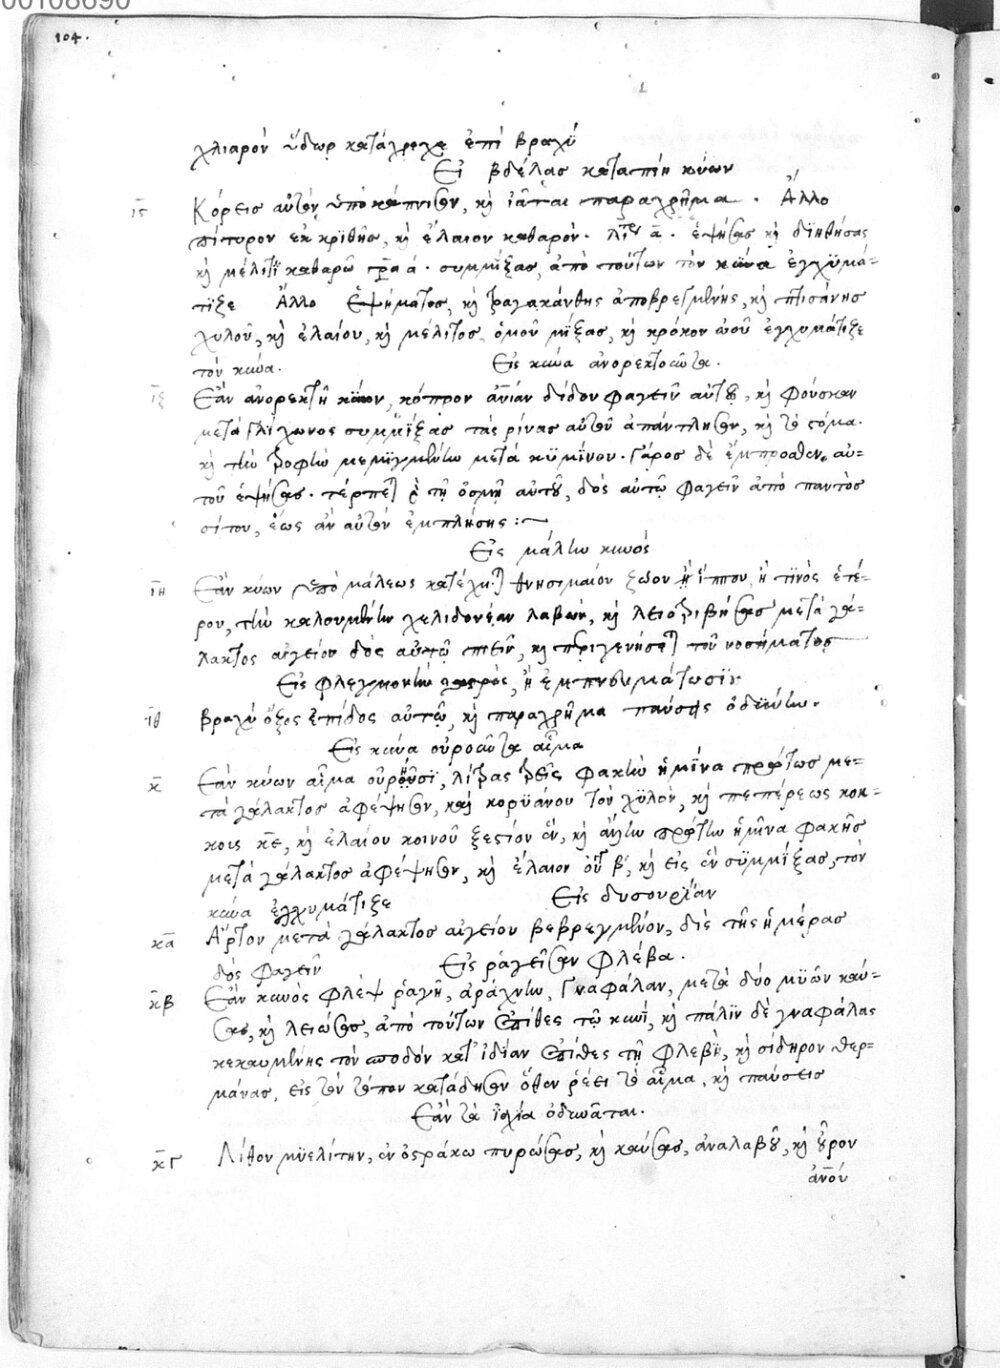 00108690
104.
χλιαρὸν ὕδωρ κατάχρεχε ἐπὶ βραχύ
Εἰ βδέλας καταπίῃ κύων
ις Κόρεισ αὐτὸν ὑποκάπνισον, κỳ ἰᾶται παραχρῆμα. Ἄλλο
πίτυρον ἐκ κριθῆς, κỳ ἔλαιον καθαρὸν. λίτρ ᾱ. ἑψήσας κỳ διηθήσας
κỳ μέλιτϊ καθαρῶ ά. συμμίξας, ἀπὸ τούτων τὸν κύνα ἐγχϋμά-
τϊζε Ἄλλο Ἑψήματος, κỳ τραγακάνθης ἀποβρεγμένης, κỳ πτισάνησ
χυλοῦ, κỳ ἐλαίου, κỳ μέλιτος, ὁμοῦ μίξας, κỳ κρόκον ὠοῦ ἐγχυμάτιζε
τὸν κύνα. Εἰς κύνα ἀνορεκτοῦντα.
ιζ Ἐὰν ἀνορεκτῆ κύων, κόπρον ἀνίαν δίδου φαγεῖν αὐτοῦ, κỳ φούσκαν
μετὰ γλίχωνος συμμίξας τὰς ρίνας αὐτοῦ ἀπάντλησον, κỳ τὸ στόμα.
κỳ τὴν τροφὴν μεμιγμένην μετὰ κϋμίνου. Γάρος δὲ ἔμπροσθεν αὐ-
τοῦ ἑψήσας. τέρπεται τῆ ὀσμῆ αὐτοῦ, δὸς αὐτῶ φαγεῖν ἀπὸ παντὸς
σίτου, ἕως ἂν αὐτὸν ἐμπλήσης:~
Εἰς μάλην κυνός
ιη Ἐὰν κύων ὑπὸ μάλεως κατέχηται θνησιμαίου ζώου ἢ ἵππου, ἢ τϊνὸς ἑτέ-
ρου, τὴν καλουμένην χελιδονέαν λαβὼν, κỳ λειοτριβήσας μετὰ γά-
λακτος αἰγείου δὸς αὐτῶ πιεῖν, κỳ περιγενήσεται τοῦ νοσήματος
Εἰς φλεγμονὴν χειρὸς, ἢ ἐμπνευμάτωσϊν
ιθ βραχὺ ὄξος ἐπίδος αὐτῶ, κỳ παραχρῆμα παύσεις ὀδύνην.
Εἰς κύνα οὐροῦντα αἷμα
κ Ἐὰν κύων αἷμα οὐροῦσϊ, λίτρας τρεῖς φακὴν ἥμϊνα πρώτως με-
τὰ γάλακτος ἀφέψησον, καὶ κορϋάνου τὸν χϋλὸν, κỳ πεπέρεως κοκ-
κοις κε, κỳ ἐλαίου κοινοῦ ξεστίον ἓν, κỳ αὐτὴν πρώτην ἥμϊνα φακῆς
μετὰ γάλακτος ἀφέψησον, κỳ ἔλαιον οὐγ β, κỳ εἰς ἓν σϋμμίξας, τὸν
κύνα ἐγχυμάτιζε Εἰς δυσουρϊάν
κα Ἄρτον μετὰ γάλακτος αἰγείου βεβρεγμένον, δὶς τῆς ἡμέρας
δὸς φαγεῖν Εἰς ῥαγεῖσαν φλέβα.
κβ Ἐὰν κυνὸς φλὲψ ῥαγῆ, ἀράχνην, γναφάλαν, μετὰ δύο μϋῶν καύ-
σας, κỳ λειώσας, ἀπὸ τούτων ἐπίθες τῶ κυνί, κỳ πάλϊν δὲ γναφάλας
κεκαυμένης τὸν σποδὸν κατ' ἰδίαν ἐπίθες τῆ φλεβὶ, κỳ σίδηρον θερ-
μάνας, εἰς τὸν τόπον κατάδησον ὅθεν ῥέει τὸ αἷμα, κỳ παύσεισ
Ἐὰν τὰ ἰσχία ὀδυνᾶται.
κγ Λίθον μϋελίτην, ἐν ὀστράκω πυρώσας, κỳ καύσας, ἀναλαβοῦ, κỳ οὖρον
ἀνοῦ